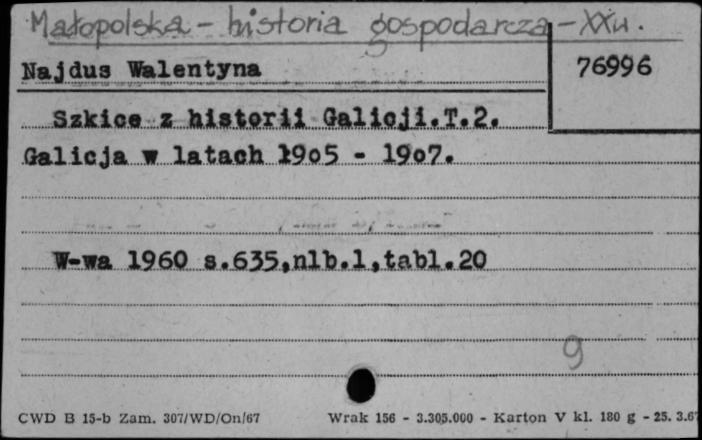 Małopolska - historia gospodarcza - XXw.
Najdus Walentyna
76996
Szkice z historii Galicji.T.2.
Galicja w latach 19o5 - 19o7.
W-wa 1960 s.635,nlb.1,tabl.20
9
CWD B 15-b Zam. 307/WD/On/67 Wrak 156 - 3.305.000 - Karton V kl. 180 g - 25. 3.67